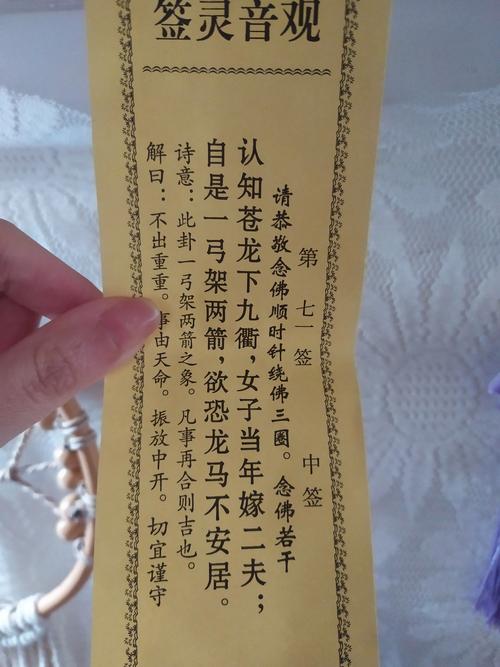 观音灵签
第七一签 中签
请恭敬念佛顺时针绕佛三圈。念佛若干
认知苍龙下九衢,女子当年嫁二夫;
自是一弓架两箭,欲恐龙马不安居。
诗意:此卦一弓架两箭之象。凡事再合则吉也。
解曰:不出重重。事由天命。振放中开。切宜谨守